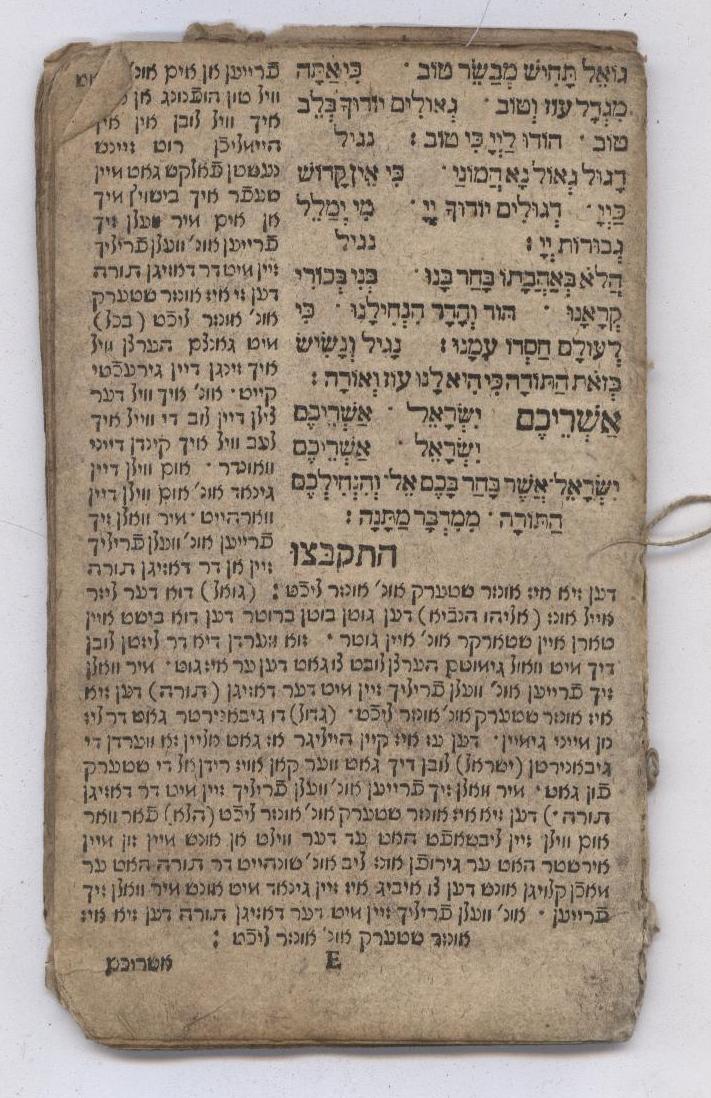 גוֹאֵל תָּחִישׁ מְבַשֵּׂר טוֹב · כִּי אַתָּה
מִגְדַּל עוֹז וְטוֹב · גְּאוּלִים יוֹדוּךָ בְּלֵב
טוֹב · הוֹדוּ לַיְיָ כִּי טוֹב : נגיל
דָּגוּל גְּאוֹל נָא הֲמוֹנַי · כִּי אֵין קָדוֹשׁ
כַּיְיָ · דְּגוּלִים יוֹדוּךָ יְיָ · מִי יְמַלֵּל
גְּבוּרוֹת יְיָ : נגיל
הֲלֹא בְּאַהֲבָתוֹ בָּחַר בָּנוּ · בְּנִי בְּכוֹרִי
קְרָאָנוּ · הוֹד וְהָדָר הִנְחִילָנוּ · כִּי
לְעוֹלָם חַסְדּוֹ עִמָּנוּ : נָגִיל וְנָשִׂישׂ
בְּזֹאת הַתּוֹרָה כִּי הִיא לָנוּ עוֹז וְאוֹרָה :
אַשְׁרֵיכֶם יִשְׂרָאֵל · אַשְׁרֵיכֶם
יִשְׂרָאֵל · אַשְׁרֵיכֶם
יִשְׂרָאֵל אֲשֶׁר בָּחַר בָּכֶם אֵל וְהִנְחִילְכֶם
הַתּוֹרָה · מִמִּדְבָּר מַתָּנָה :
התקבצו
פרייען אן אים אונ'
וויל טון הופנונג אן
איך וויל לובן אין אין
הייאליכן רוט זיינט
נעשטן פאלקש גאט מיין
טעפר איך ביטויך איך
אן אים מיר וועלן זיך
פרייען אונ' וועלן פריליך
זיין מיט דר דאזיגן תורה
דען זיא איז אונזר שטערק
אונ' אונזר ליכט (בכל)
מיט גאנצם הערצן וויל
איך זינגן דיין גירעכטי
קייט · אונ' איך וויל דער
צילן דיין לוב די ווייל איך
לעב וויל איך קינדן דייני
וואונדר · אום ווילן דיין
גינאד אונ' אום ווילן דיין
ווארהייט · מיר וואלן זיך
פרייען אונ' וועלן פריליך
זיין אן דר דאזיגן תורה
דען זיא איז אונזר שטערק אונ' אונזר ליכט : (גואל) דוא דער ליזר
אייל אונז (אליהו הנביא) דען גוטן בוטן ברוטר דען דוא ביסט איין
טארן איין שטארקר אונ' איין גוטר · זוא ווערדן דיא דר ליזטן לובן
דיך מיט וואול גימוטם הערצן לובט צו גאט דען ער איז גוט · מיר וואלן
זיך פרייען אונ' וועלן פריליך זיין מיט דער דאזיגן (תורה) דען זיא
איז אונזר שטערק אונ' אונזר ליכט · (גדול) דו גיבאנירטר גאט דר ליז
נון מייני גימיין · דען עז איז קיין הייליגר אז גאט אליין זא ווערדן די
גיבאנירטן (ישראל) לובן דיך גאט ווער קאן אויז רידן אל די שטערק
פון גאט · מיר וואלן זיך פרייען אונ' וועלן פריליך זיין מיט דר דאזיגן
תורה) דען זיא איז אונזר שטערק אונ' אונזר ליכט (הלא) פאר וואר
אום ווילן זיין ליבשאפט האט עד דער ווילט אן אונט מיין זון מיין
אירשטר האט ער גירופן אונז ליב אונ' שונהייט דר תורה האט ער
מאכן קלויגן אונט דען צו איביג איז זיין גינאד מיט אונט מיר וואלן זיך
פרייען · אונ' וועלן פריליך זיין מיט דער דאזיגן תורה דען זיא איז
אונזר שטערק אונ' אונזר ליכט :
E
אשריכם